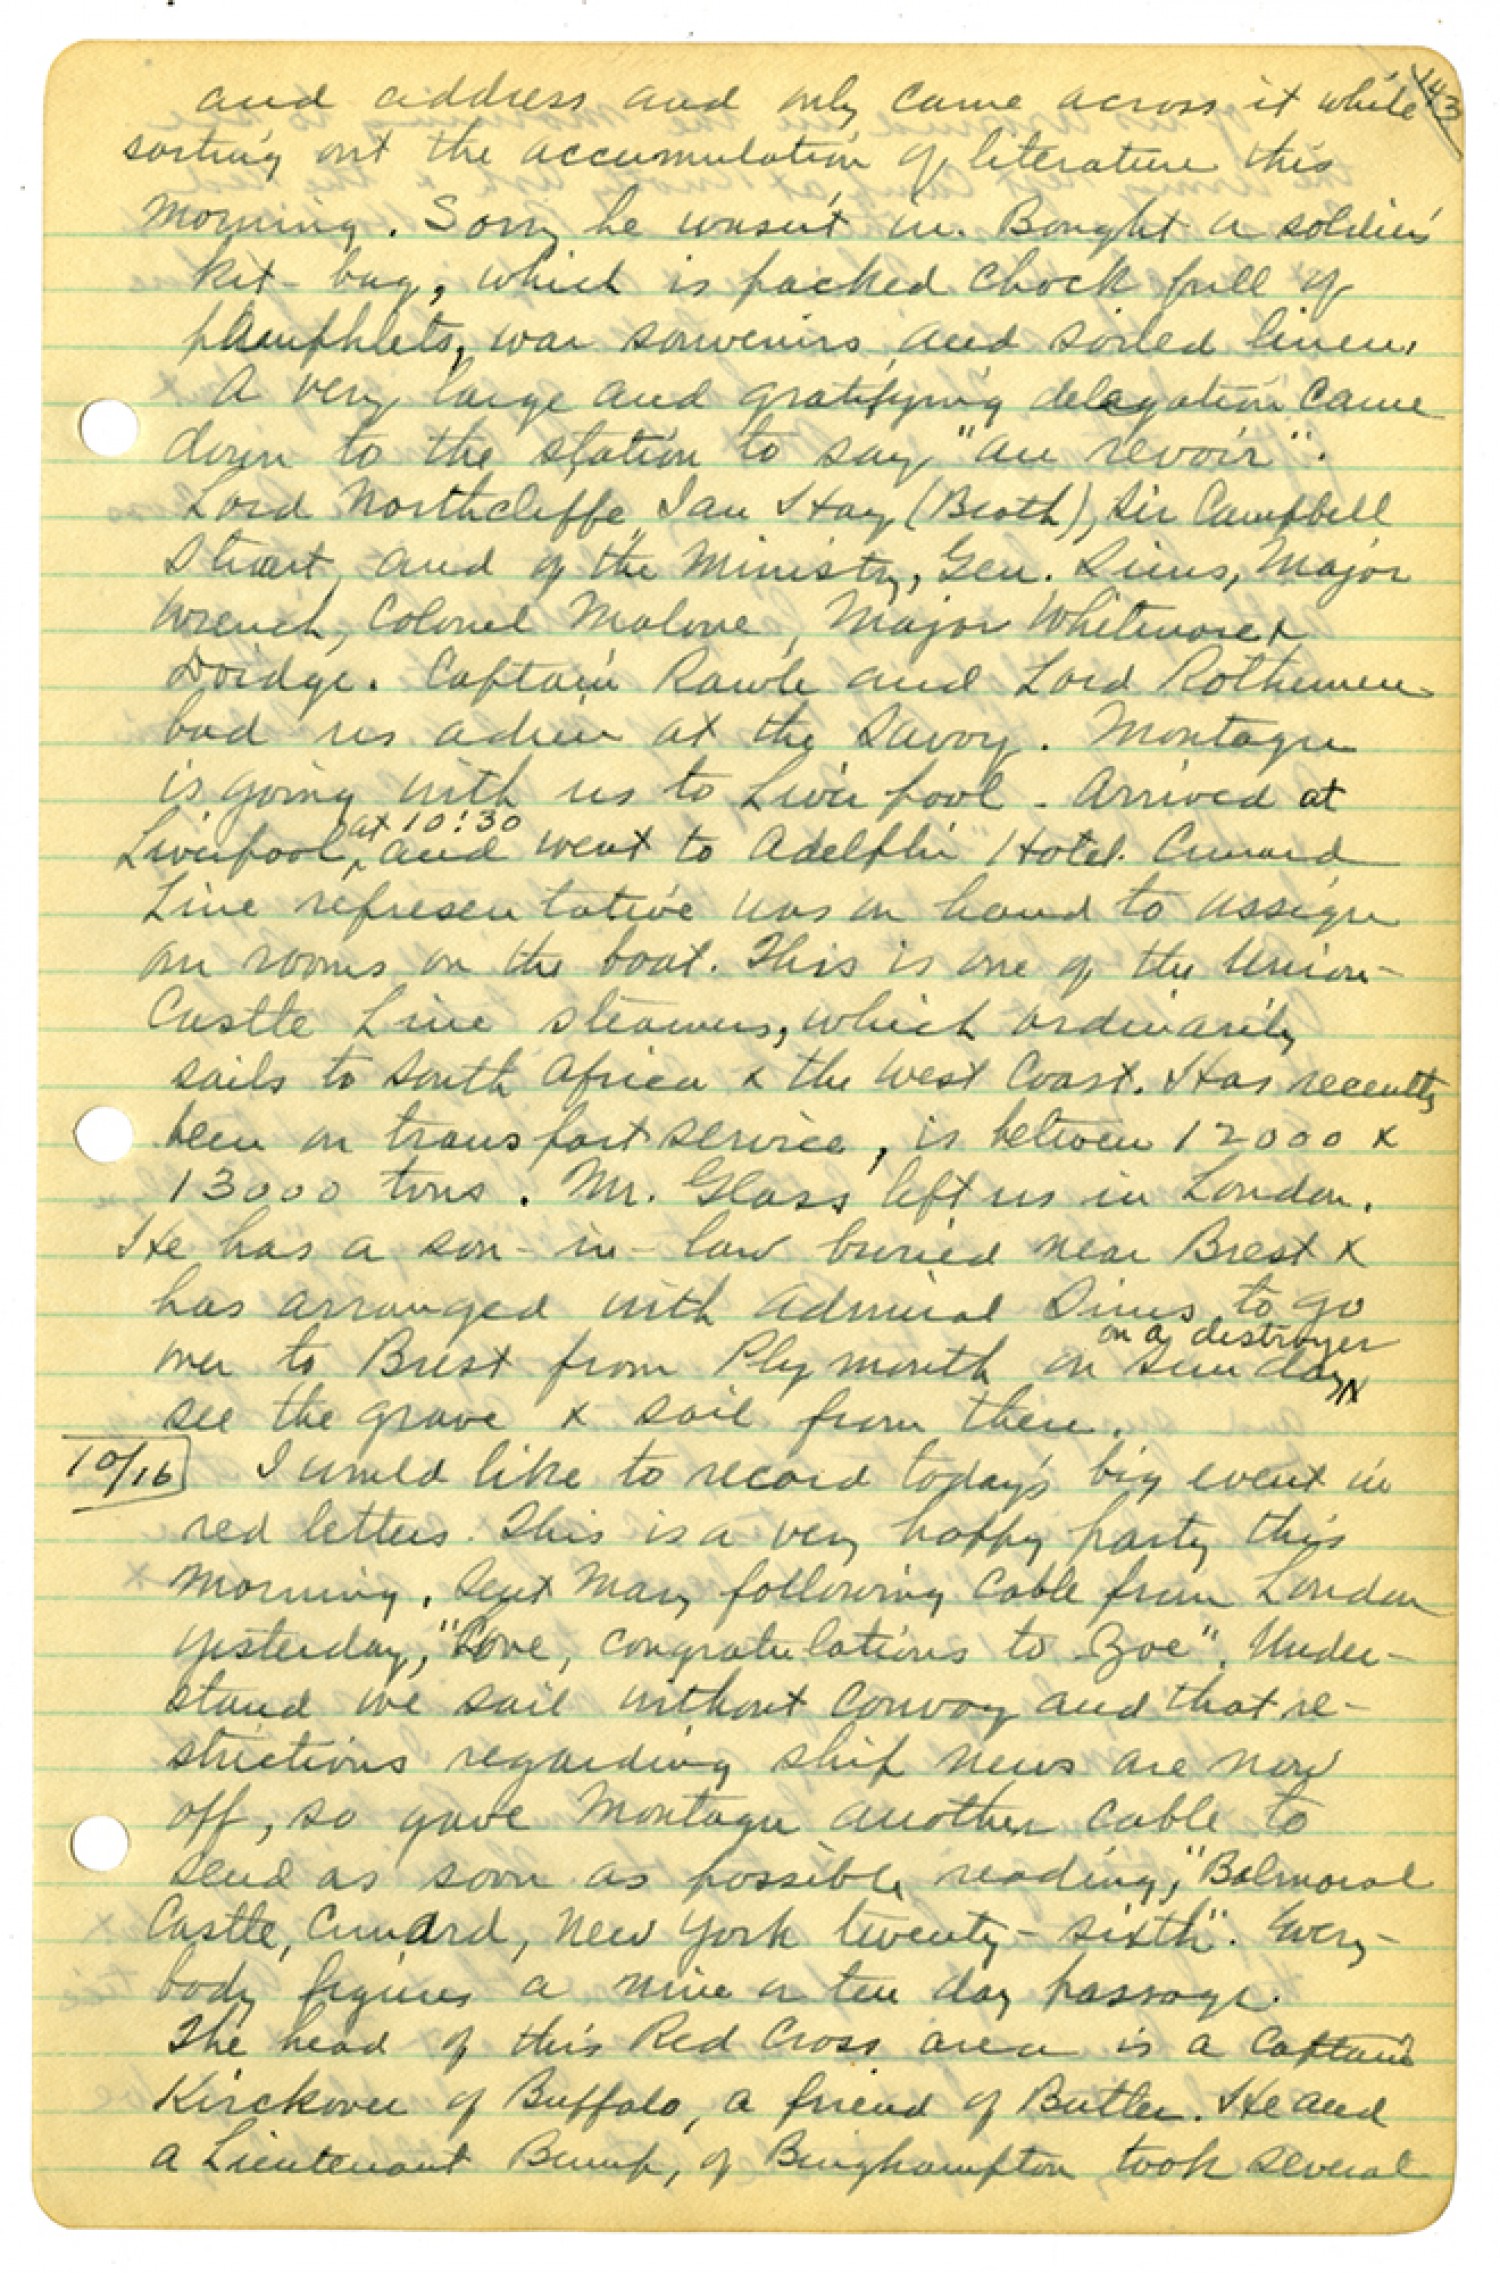 143
and address and only came across it while
sorting out the accumulation of literature this
morning. Sorry he wasn't in. Bought a soldier's
kit-bag, which is packed chock full of
pamphlets, war souvenirs and soiled linen.
A very large and gratifying delegation came
down to the station to say "au revoir".
Lord Northcliffe, Ian Hay (Beith), Sir Campbell
Stuart, and of the Ministry, Gen. Sims, Major
Wrench, Colonel Malone, Major Whitmore &
Doidge. Captain and Lord Rothermere
bad us adieu at the Savoy. Montague
is going with us to Liverpool - Arrived at
Liverpool, at 10:30 and went to Adelphi Hotel. Cunard
Line representative was on hand to assign
our rooms on the boat. This is one of the Union-
Castle Line steamers, which ordinarily
sails to South Africa & the West Coast. Has recently
been on transport service, is between 12000 &
13000 tons. Mr. Glass left us in London.
He has a son-in-law buried near Brest &
has arranged with Admiral Sims to go
over to Brest from Plymouth on Sunday on a destroyer
see the grave & sail from there.
10/16 I would like to record today's big event in
red letters. This is a very happy party this
morning. Sent Mary following cable from London
yesterday, "Love, congratulations to Zoe". Under-
stand we sail without convoy and that re-
strictions regarding ship news are now
off, so gave Montague another cable to
send as soon as possible reading, "Balmoral
Castle, Cunard, New York twenty-sixth". Every-
body figures a nine or ten day passage.
The head of this Red Cross area is a Captain
Kirckover of Buffalo, a friend of Butler. He and
a Lieutenant Bump, of Binghampton took several